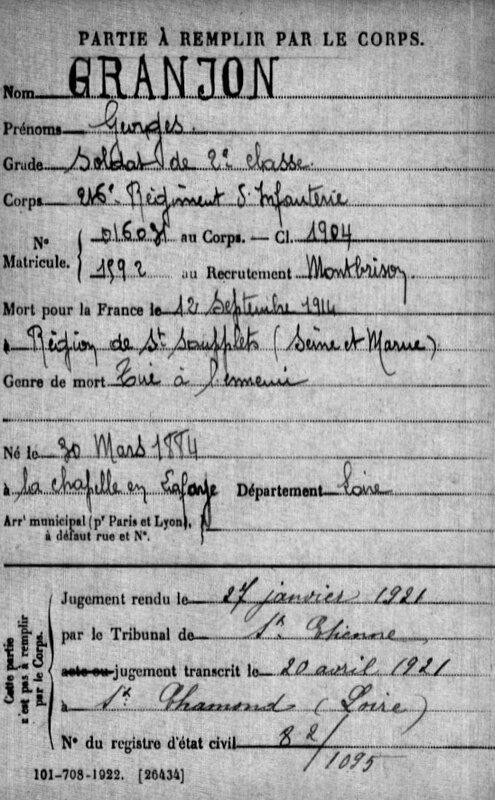 PARTIE À REMPLIR PAR LE CORPS.
Nom GRANJON
Prénoms Georges.
Grade Soldat de 2e classe.
Corps 216e Régiment d'Infanterie
Nº Matricule. 01607 au Corps. — Cl. 1904
1592 au Recrutement Montbrison
Mort pour la France le 12 Septembre 1914
à Région de St Soupplets (Seine et Marne)
Genre de mort Tué à l'ennemi
Né le 30 Mars 1884
à La chapelle en Lafaye Département Loire
Arrt municipal (pr Paris et Lyon),
à défaut rue et Nº.
Cette partie n'est pas à remplir par le Corps.
Jugement rendu le 27 janvier 1921
par le Tribunal de St Etienne
acte ou jugement transcrit le 20 avril 1921
à St Chamond (Loire)
Nº du registre d'état civil 82/1095
101-708-1922. [26434]